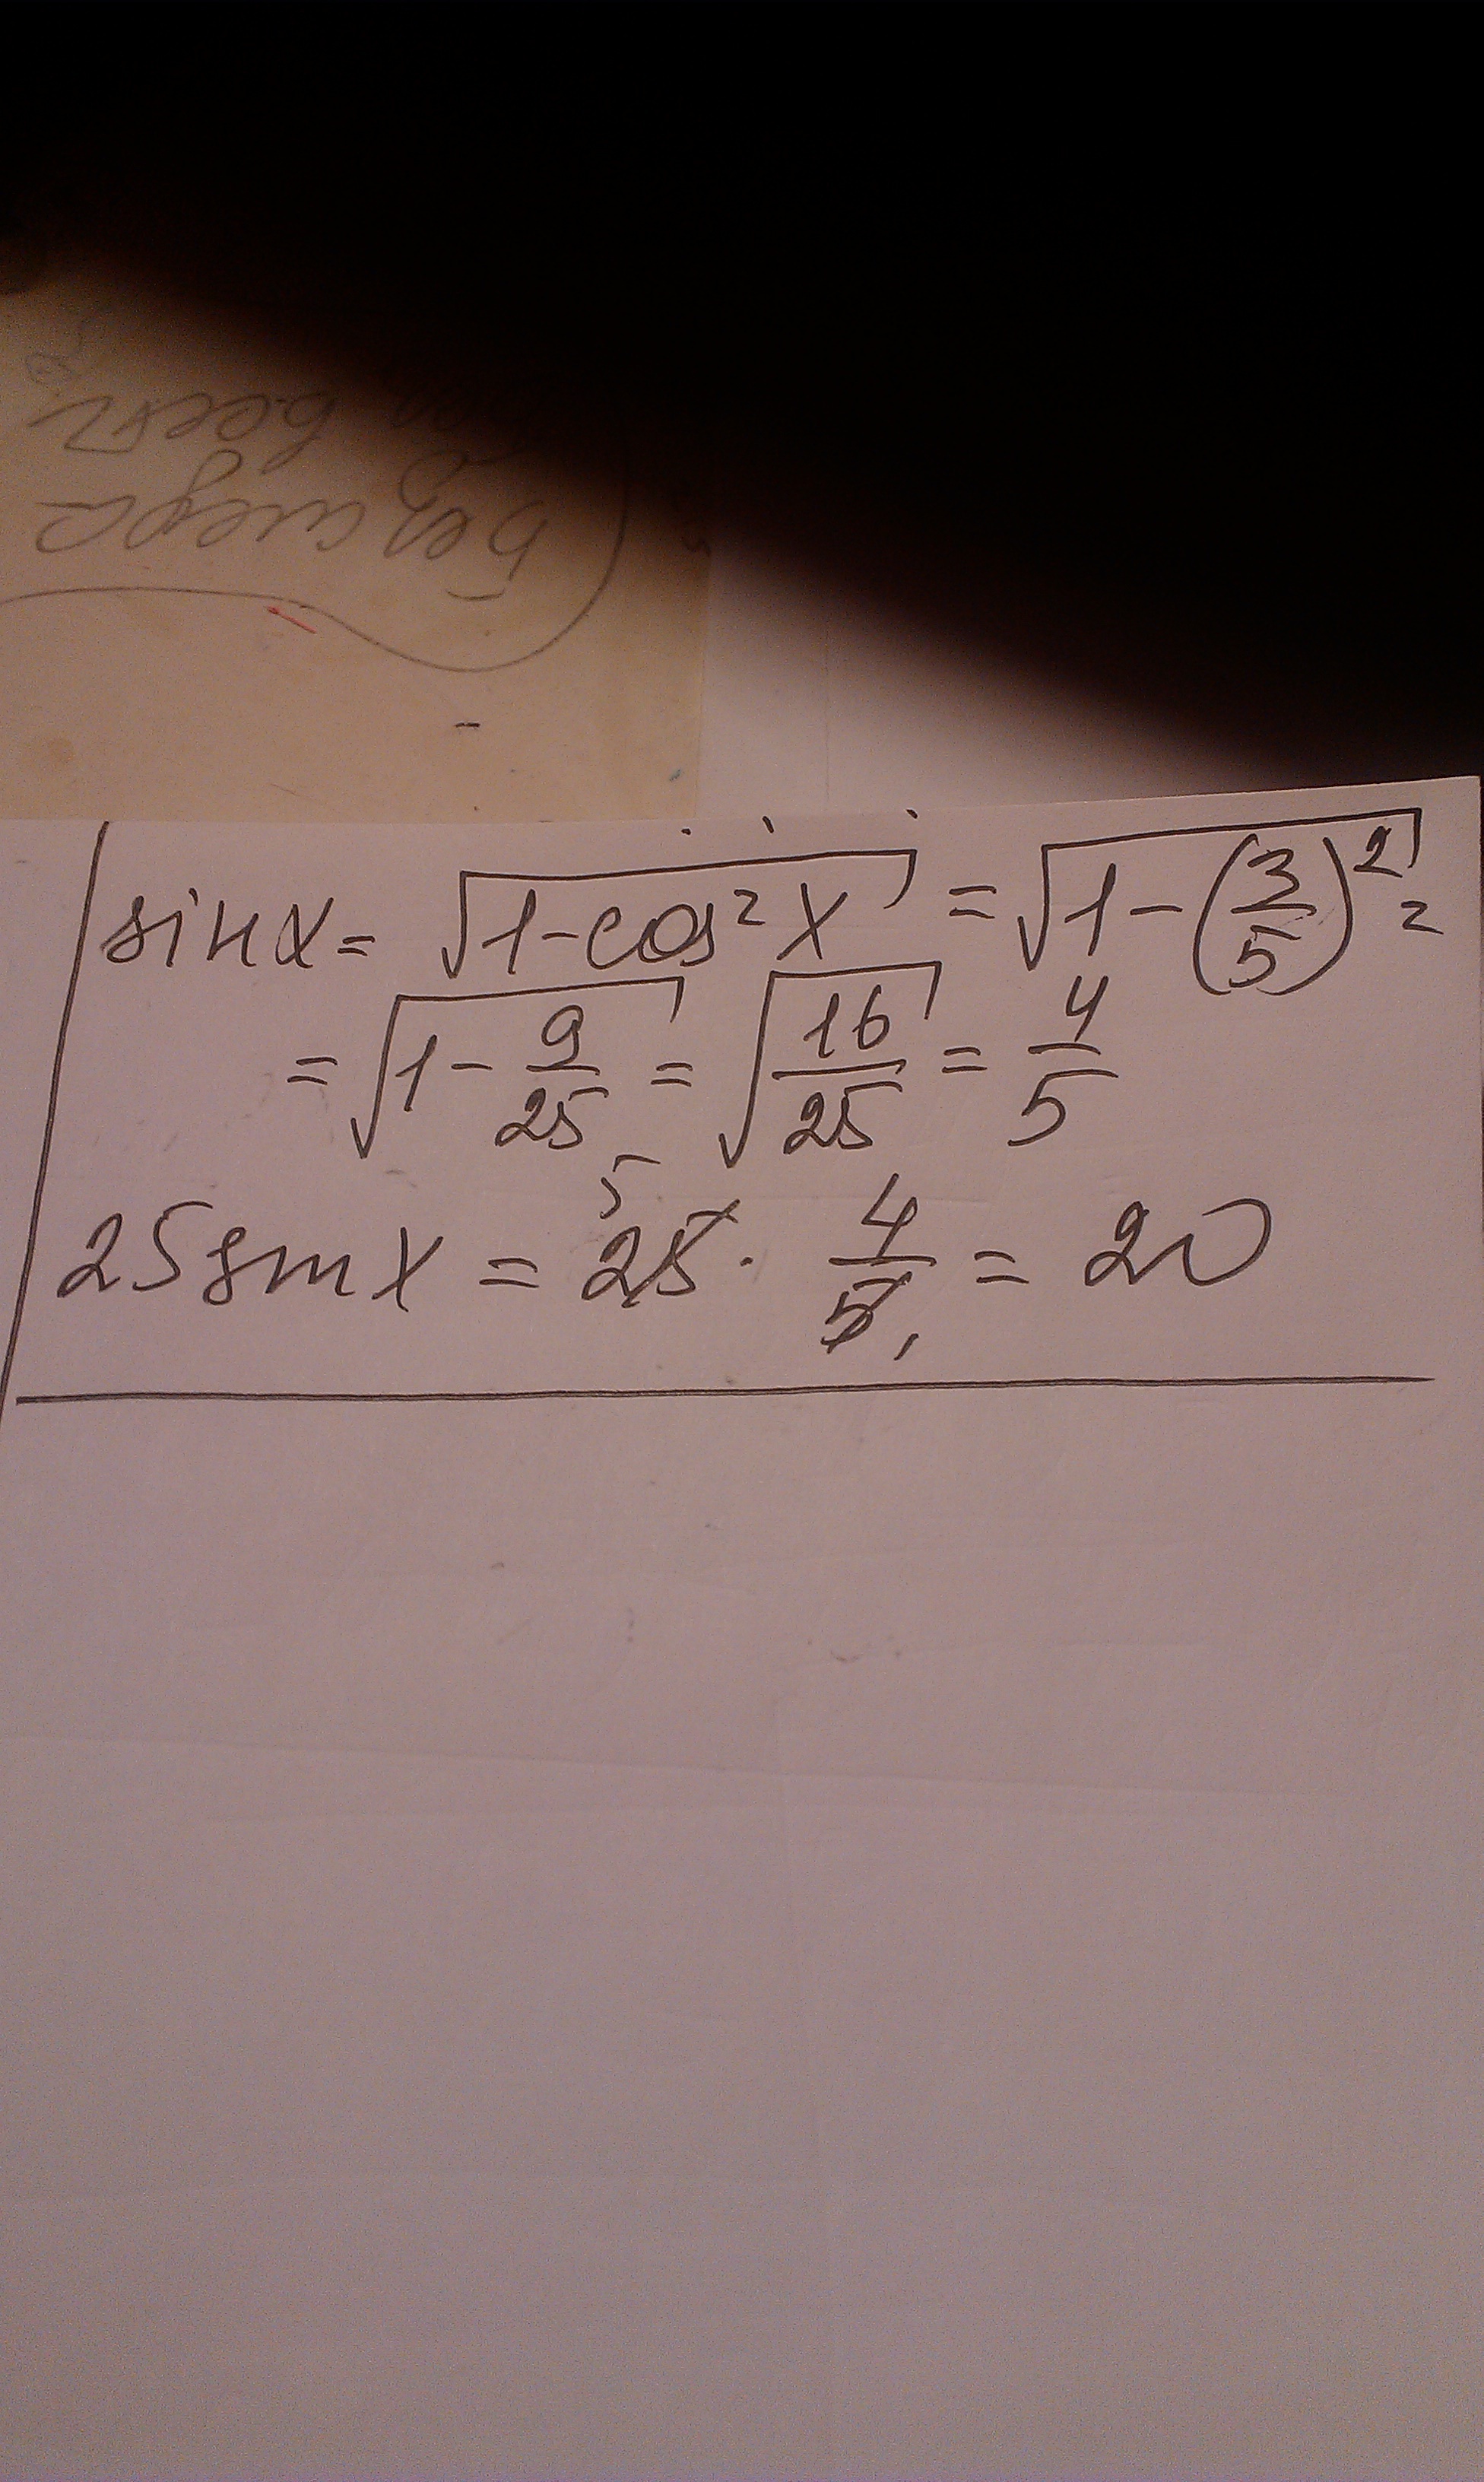 sin x = √(1-cos²x) = √(1-(3/5)²) =
= √(1-9/25) = √(16/25) = 4/5
25 sin x = 25 5 · 4/5 1 = 20